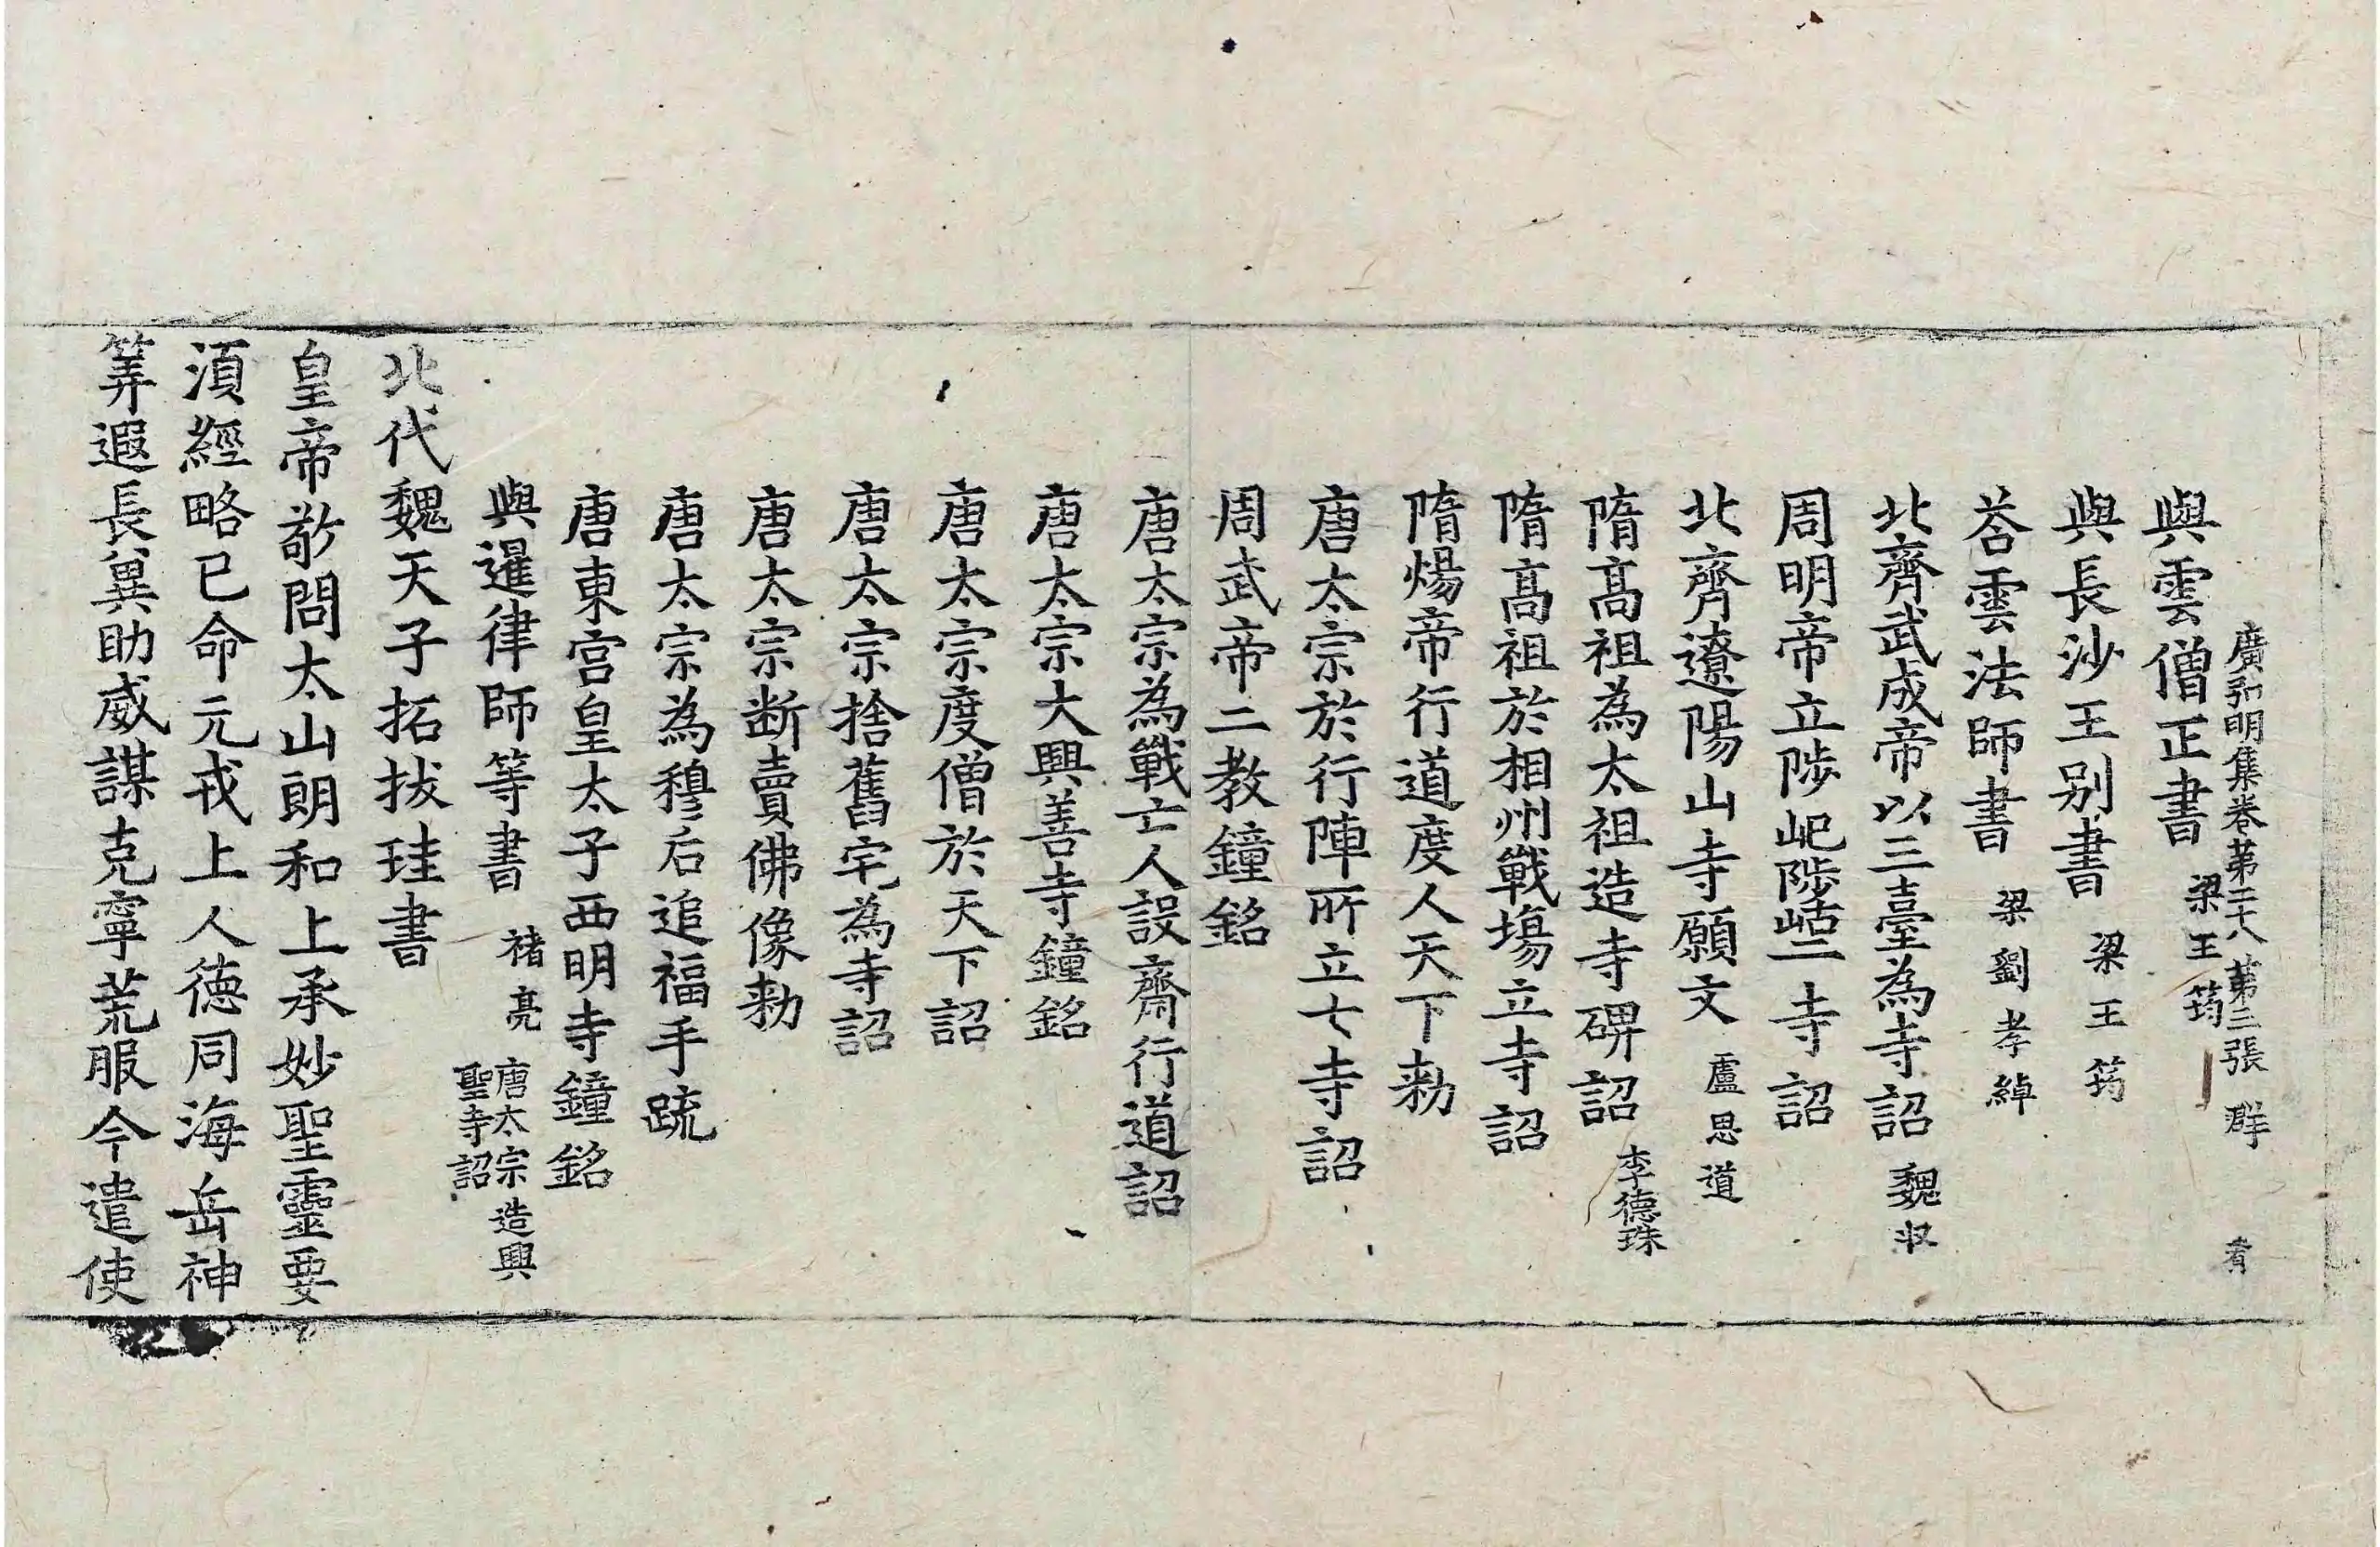 廣弘明集卷第二十八 第二張 群 肴
與雲僧正書 梁王筠
與長沙王别書 梁王筠
荅雲法師書 梁劉孝綽
北齊武成帝以三臺為寺詔 魏収
周明帝立陟屺陟岵二寺詔
北齊遼陽山寺願文 盧思道
隋髙祖為太祖造寺碑詔 李德珠
隋髙祖於相州戰塲立寺詔
隋煬帝行道度人天下勑
唐太宗於行陣所立七寺詔
周武帝二教鐘銘
唐太宗為戰亡人設齋行道詔
唐太宗大興善寺鐘銘
唐太宗度僧於天下詔
唐太宗捨舊宅為寺詔
唐太宗断賣佛像勑
唐太宗為穆后追福手疏
唐東宫皇太子西明寺鐘銘
與暹律師等書 褚亮 唐太宗造興
聖寺詔
北代魏天子拓拔珪書
皇帝敬問太山朗和上承妙聖靈要
湏經略已命元戎上人德同海岳神
筭遐長兾助威謀克寧荒服今遣使